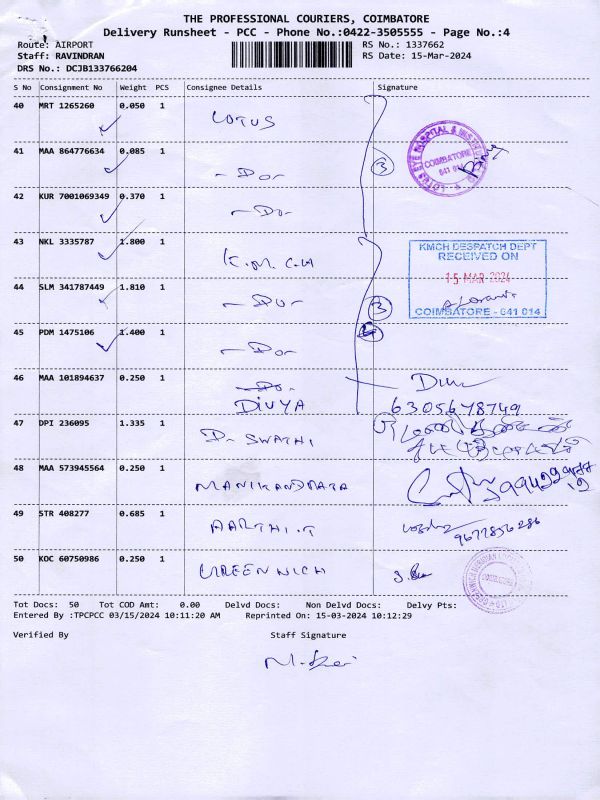 THE PROFESSIONAL COURIERS, COIMBATORE
Delivery Runsheet - PCC - Phone No.:0422-3505555 - Page No.:4
Route: AIRPORT
RS No.: 1337662
Staff: RAVINDRAN
RS Date: 15-Mar-2024
DRS No.: DCJB133766204
S No Consignment No Weight PCS Consignee Details Signature
40 MRT 1265260 0.050 1 LOTUS
LOTUS EYE HOSPITAL & COIMBATORE 641 014
41 MAA 864776634 0.085 1 - Do - 3
42 KUR 7001069349 0.370 1 - Do -
43 NKL 3335787 1.800 1 K.M.C.H
KMCH DESPATCH DEPT
RECEIVED ON
15-MAR-2024
COIMBATORE - 641 014
44 SLM 341787449 1.810 1 - Do - 3
45 PDM 1475106 1.400 1 - Do -
46 MAA 101894637 0.250 1 - Do -
DIVYA 6305678749
47 DPI 236095 1.335 1 D. SWATHI
48 MAA 573945564 0.250 1
49 STR 408277 0.685 1 AARTHI.T
9677856286
50 KOC 60750986 0.250 1 GREENWICH
Tot Docs: 50 Tot COD Amt: 0.00 Delvd Docs: Non Delvd Docs: Delvy Pts:
Entered By :TPCPCC 03/15/2024 10:11:20 AM Reprinted On: 15-03-2024 10:12:29
Verified By Staff Signature